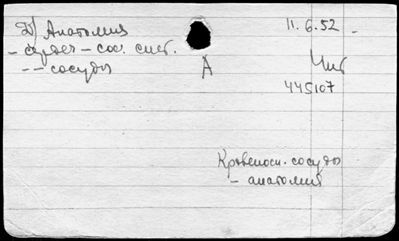 Д) Анатомия
11.6.52
- сердеч - сос. сист.
-- сосуды
А
Чит
445107
Кровеносн. сосуды
- анатомия